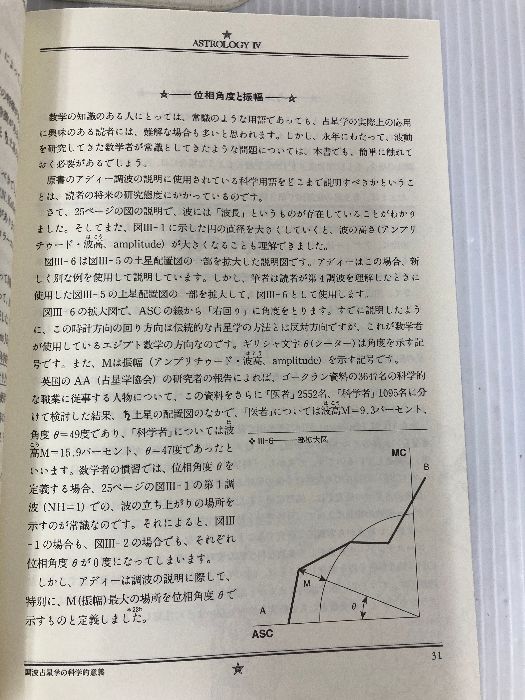 ASTROLOGY IV
☆――位相角度と振幅――☆
数学の知識のある人にとっては、常識のような用語であっても、占星学の実際上の応用
に興味のある読者には、難解な場合も多いと思われます。しかし、永年にわたって、波動
を研究してきた数学者が常識としてきたような問題については、本書でも、簡単に触れて
おく必要があるでしょう。
原書のアディー調波の説明に使用されている科学用語をどこまで説明すべきかというこ
とは、読者の将来の研究態度にかかっているのです。
さて、25ページの図の説明で、波には「波長」というものが存在していることがわかり
ました。そしてまた、図III-1に示した円の直径を大きくしていくと、波の高さ(アンプリ
チゥード・波高、amplitude)が大きくなることも理解できました。
図III-6は図III-5の土星配置図の一部を拡大した説明図です。アディーはこの場合、新
しく別な例を使用して説明しています。しかし、筆者は読者が第4調波を理解したときに
使用した図III-5の土星配置図の一部を拡大して、図III-6として使用します。
図III-6の拡大図で、ASCの線から「右回り」に角度をとります。すでに説明したよう
に、この時計方向の回り方向は伝統的な占星学の方法とは反対方向ですが、これが数学者
が使用しているエジプト数学の方向なのです。ギリシャ文字θ(シーター)は角度を示す記
号です。また、Mは振幅(アンプリチゥード・波高、amplitude)を示す記号です。
英国のAA(占星学協会)の研究者の報告によれば、ゴークラン資料の3647名の科学的
な職業に従事する人物について、この資料をさらに「医者」2552名、「科学者」1095名に分
けて検討した結果、♄土星の配置図のなかで、「医者」については波高M=9.3パーセント、
角度θ=49度であり、「科学者」については波
高M=15.9パーセント、θ=47度であったと
いいます。数学者の慣習では、位相角度θを
定義する場合、25ページの図III-1の第1調
波(NH=1)での、波の立ち上がりの場所を
示すのが常識なのです。それによると、図III
-1の場合も、図III-2の場合でも、それぞれ
位相角度θが0度になってしまいます。
しかし、アディーは調波の説明に際して、
特別に、M(振幅)最大の場所を位相角度θで
示すものと定義しました。
❖III-6――一部拡大図
MC
B
M
θ
A
ASC
31
調波占星学の科学的意義